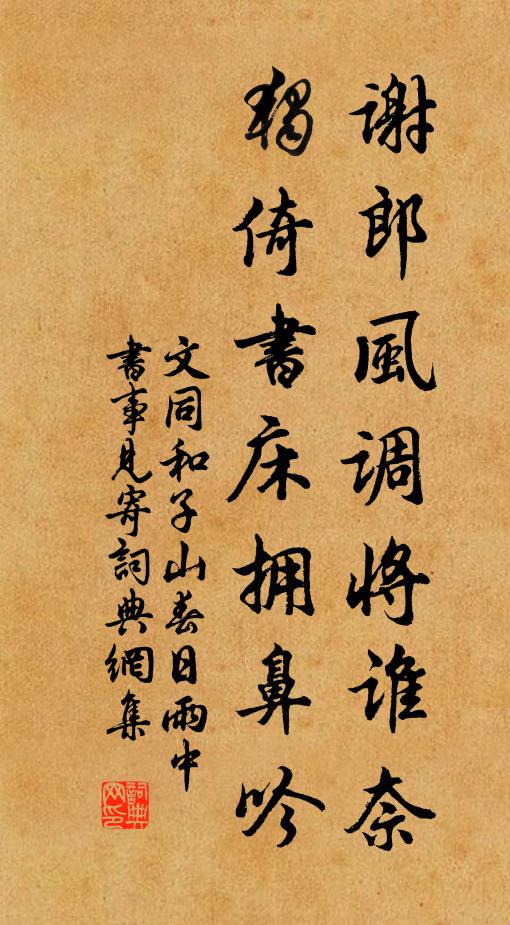 谢郎風调将谁奈
獨倚書床拥鼻吟
文同和子山春日雨中
書事見寄詞典網集
詞典网印